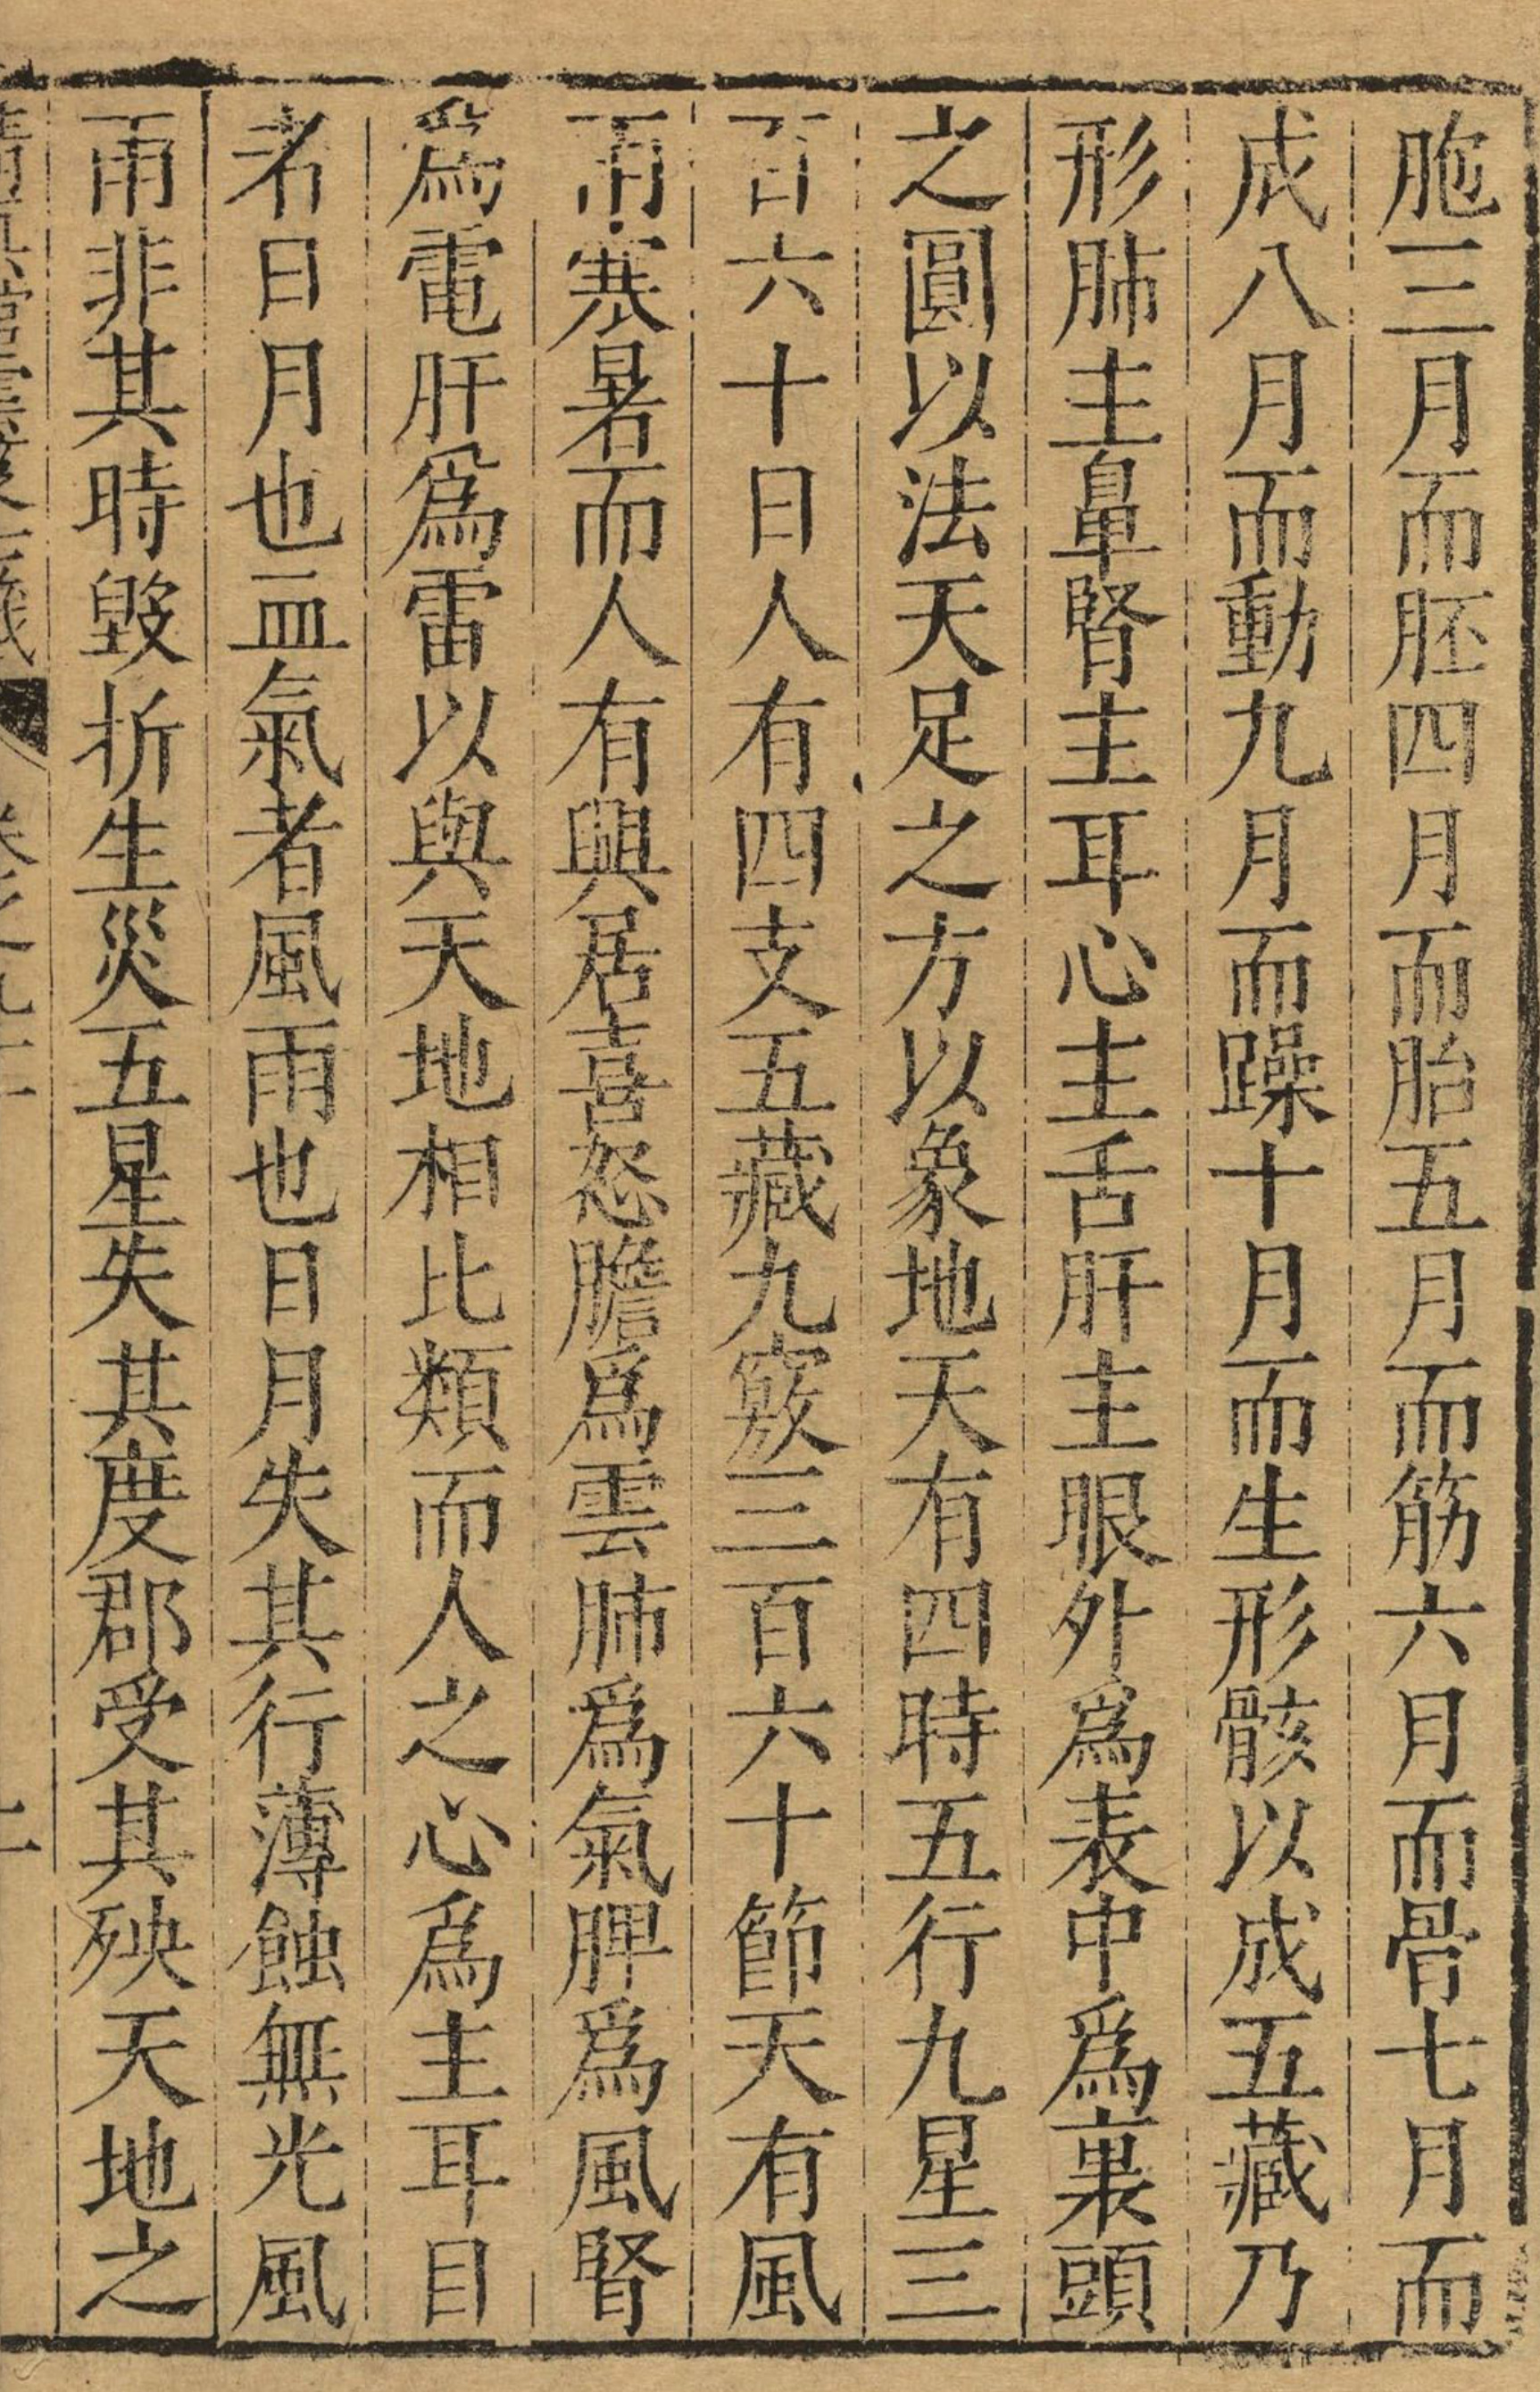 胞三月而胚四月而胎五月而筋六月而骨七月而
成八月而動九月而躁十月而生形骸以成五藏乃
形肺主鼻腎主耳心主舌肝主眼外爲表中爲裏頭
之圓以法天足之方以象地天有四時五行九星三
百六十日人有四支五藏九竅三百六十節天有風
雨寒暑而人有興居喜怒膽爲雲肺爲氣脾爲風腎
爲電肝爲雷以與天地相比類而人之心爲主耳目
者日月也血氣者風雨也日月失其行薄蝕無光風
雨非其時毀折生災五星失其度郡受其殃天地之